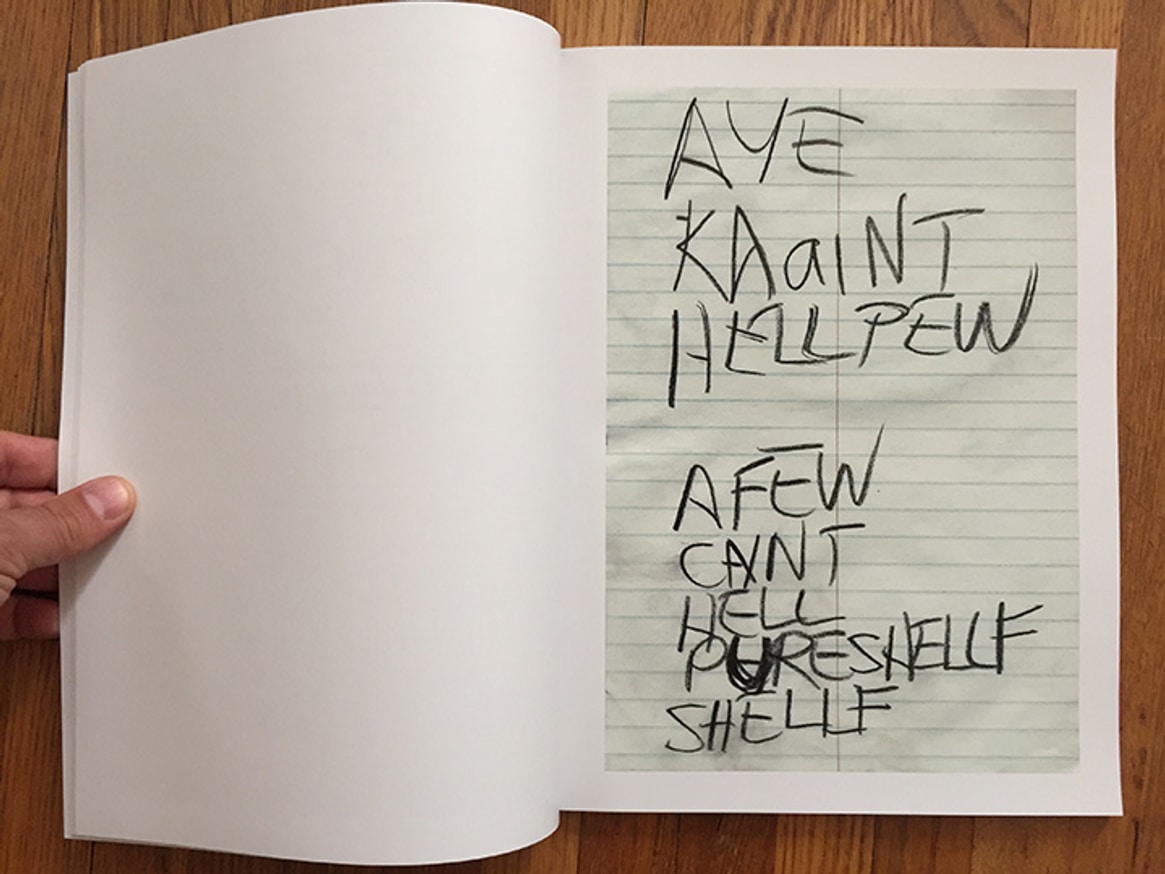 AYE
KAaINT
HELLPEW
A FEW
CAYNT
HELL
PURESHELLF
SHELLF